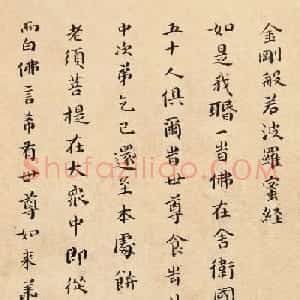 金剛般若波羅蜜経
如是我聞一旹佛在舍衛國
五十人俱爾旹世尊食旹
中次弟乞已還至本處飰
老須菩提在大衆中即從
而白佛言希有世尊如來
Shufaziliao.com